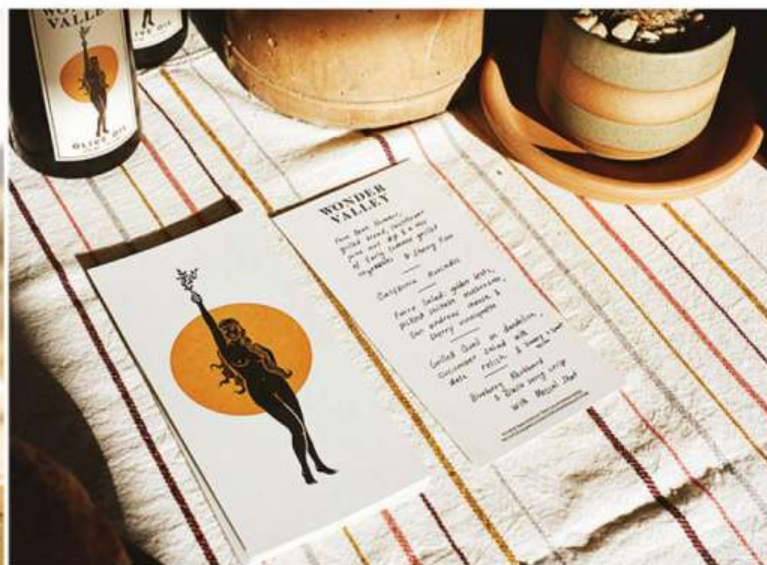 WONDER
VALLEY
OLIVE OIL
WONDER
VALLEY
Fava Bean Hummus,
grilled bread, cauliflower
pine nut dip & a mix
of Early Summer grilled
vegetables & Sherry Fino
California Avocados
Farro Salad: golden beets,
pickled shiitake mushrooms,
San Andreas cheese &
sherry vinaigrette
Grilled Quail on dandelion,
cucumber salad with
date relish &
Blueberry Rhubarb
& Black berry crisp
with Mezcal Shot